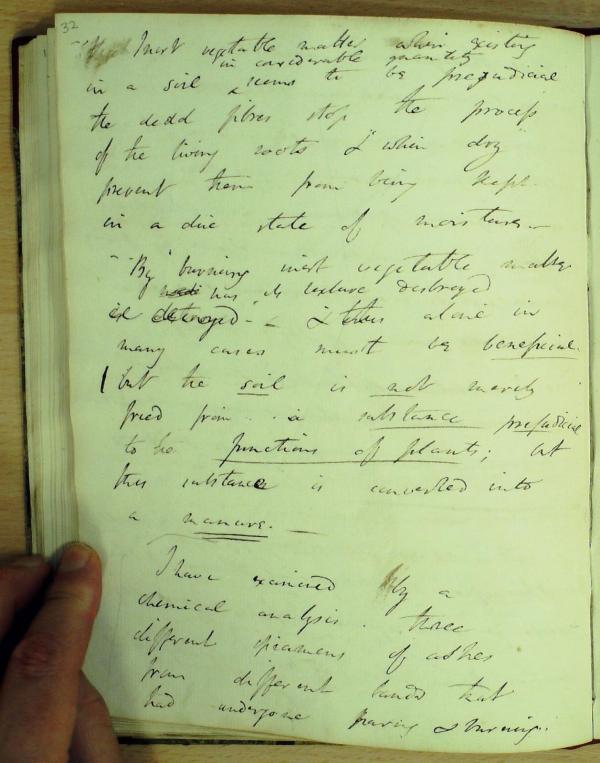 32
Inert vegetable matter when existing
in considerable quantity
in a soil seems to be prejudicial
the dead fibres stop the process
of the living roots & when dry
prevent them from being kept
in a due state of moisture –
"By burning inert vegetable matter
has its texture destroyed
is destroyed – & this alone in
many cases must be beneficial.
but the soil is not merely
freed from a substance prejudicial
to the functions of plants; but
this substance is converted into
a manure. –
I have examined by a
chemical analysis three
different specimens of ashes
from different lands that
had undergone paring & burning.